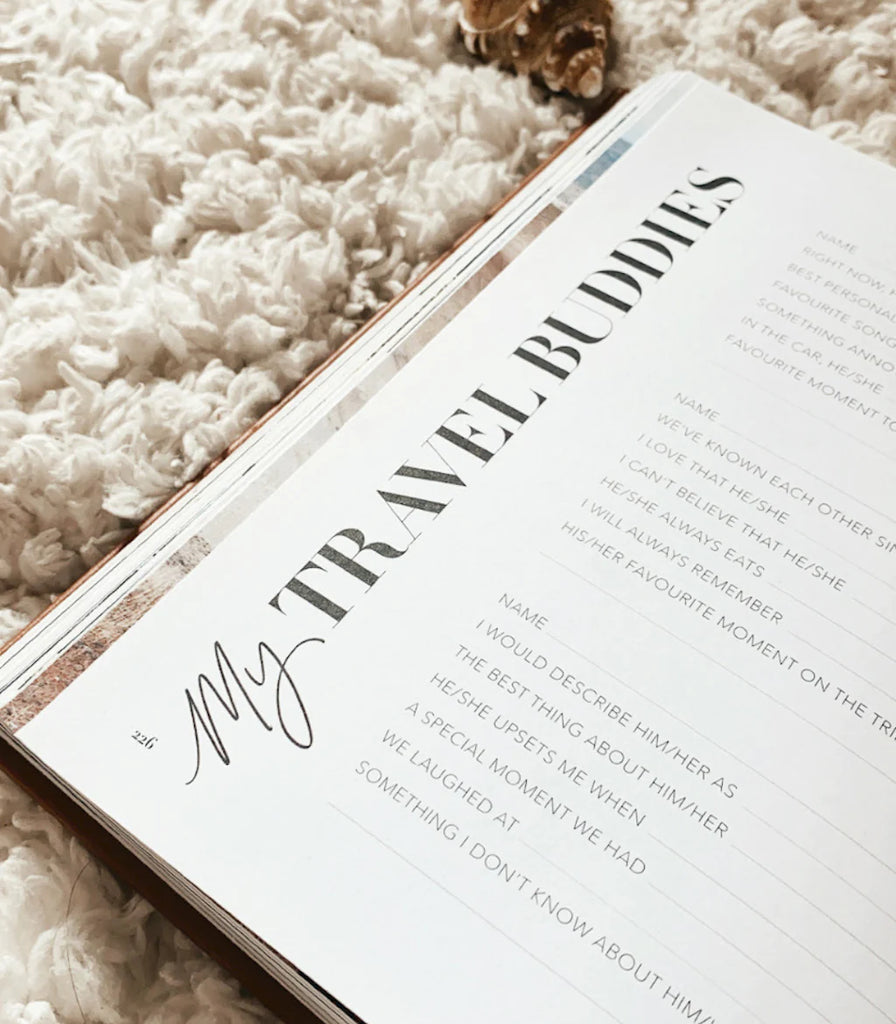 My TRAVEL BUDDIES
NAME
RIGHT NOW,
BEST PERSONAL
FAVOURITE SONG
SOMETHING ANNO
IN THE CAR, HE/SHE
FAVOURITE MOMENT TO
NAME
WE'VE KNOWN EACH OTHER SIN
I LOVE THAT HE/SHE
I CAN'T BELIEVE THAT HE/SHE
HE/SHE ALWAYS EATS
I WILL ALWAYS REMEMBER
HIS/HER FAVOURITE MOMENT ON THE TRI
NAME
I WOULD DESCRIBE HIM/HER AS
THE BEST THING ABOUT HIM/HER
HE/SHE UPSETS ME WHEN
A SPECIAL MOMENT WE HAD
WE LAUGHED AT
SOMETHING I DON'T KNOW ABOUT HIM/
226